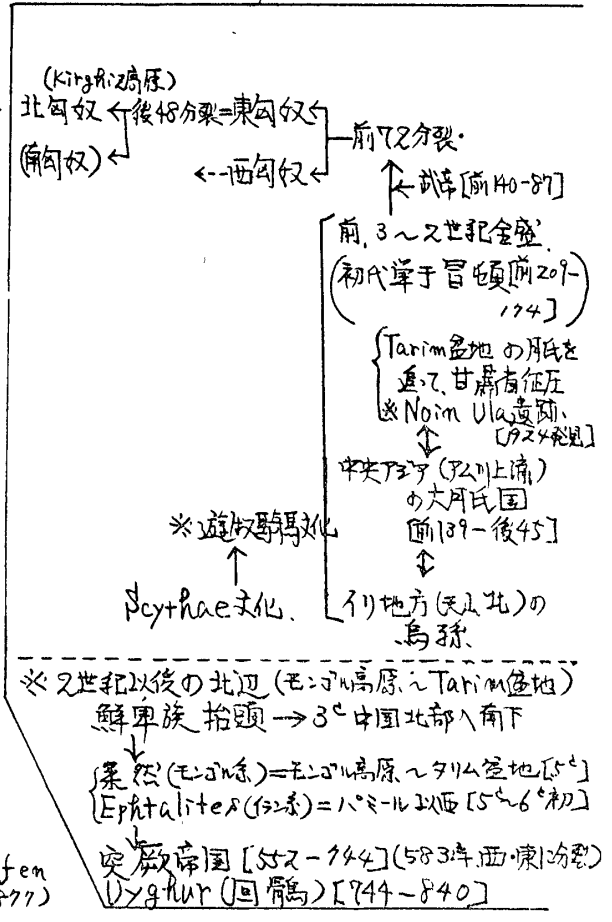 (Kirghiz高原)
北匈奴←後48分裂=東匈奴←
(南匈奴)←
←--西匈奴←
前72分裂.
←武帝[前140-87]
前,3~2世紀全盛
(初代単于冒頓[前209-
174])
Tarim盆地の月氏を
追って、甘粛省征圧
※Noin Ula遺跡.
[1924発見]
中央アジア(アム川上流)
の大月氏国
[前139-後45]
※遊牧騎馬文化
↑
Scythae文化、
イリ地方(天山北)の
烏孫
※2世紀以後の北辺(モンゴル高原~Tarim盆地)
鮮卑族抬頭→3c中国北部へ南下
柔然(モンゴル系)=モンゴル高原~タリム盆地[5c]
Ephtalites(イラン系)=パミール以西[5c~6c初]
突厥帝国[552-744](583年,西・東に分裂)
Uyghur(回鶻)[744~840]
fen
877)